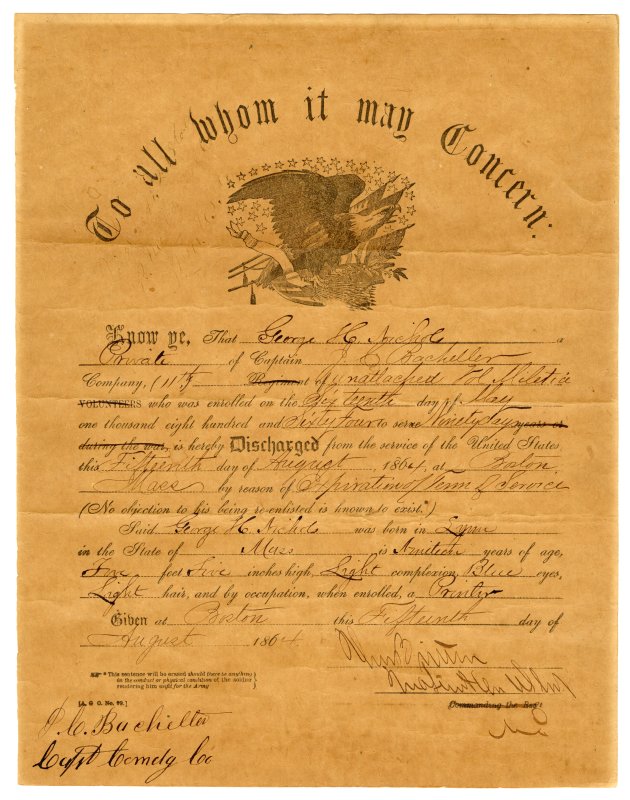 To all whom it may Concern:
Know ye, That George H. Nichols a
Private of Captain J C Bacheller
Company, (11th) Regiment of Unattached Vol Militia
VOLUNTEERS who was enrolled on the Sixteenth day of May
one thousand eight hundred and Sixty four to serve Ninety Days years or
during the war, is hereby Discharged from the service of the United States
this Fifteenth day of August, 1864, at Boston,
Mass by reason of Expiration of Term of Service
(No objection to his being re-enlisted is known to exist.*)
Said George H. Nichols was born in Lynn
in the State of Mass, is Nineteen years of age,
Five feet Five inches high, Light complexion, Blue eyes,
Light hair, and by occupation, when enrolled, a Printer
Given at Boston this Fifteenth day of
August 1864.
* This sentence will be erased should there be anything
in the conduct or physical condition of the soldier
rendering him unfit for the Army
[A. G. O. No. 99.]
Commanding the Reg't
J. C. Bacheller
Capt Comdg Co